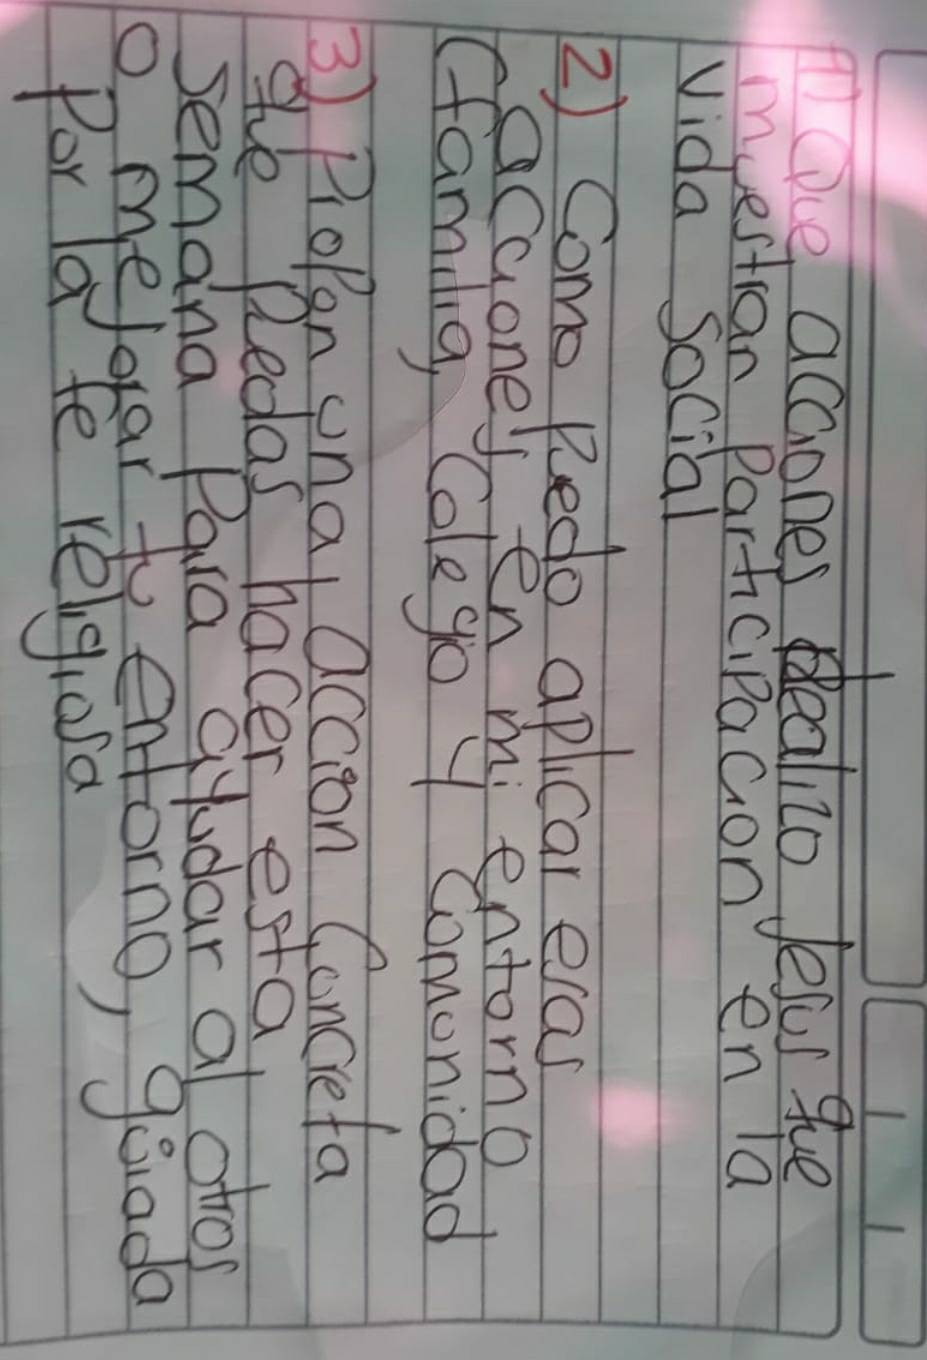 1) Que acciones Realizo Jesus que
muestran Participacion en la
vida Social
2) Como Puedo aplicar esas
acciones en mi entorno
(familia, Colegio y Comunidad
3) Propon una accion Concreta
que Puedas hacer esta
semana Para ayudar al otros
o mejorar tu entorno, guiada
Por la fe religiosa